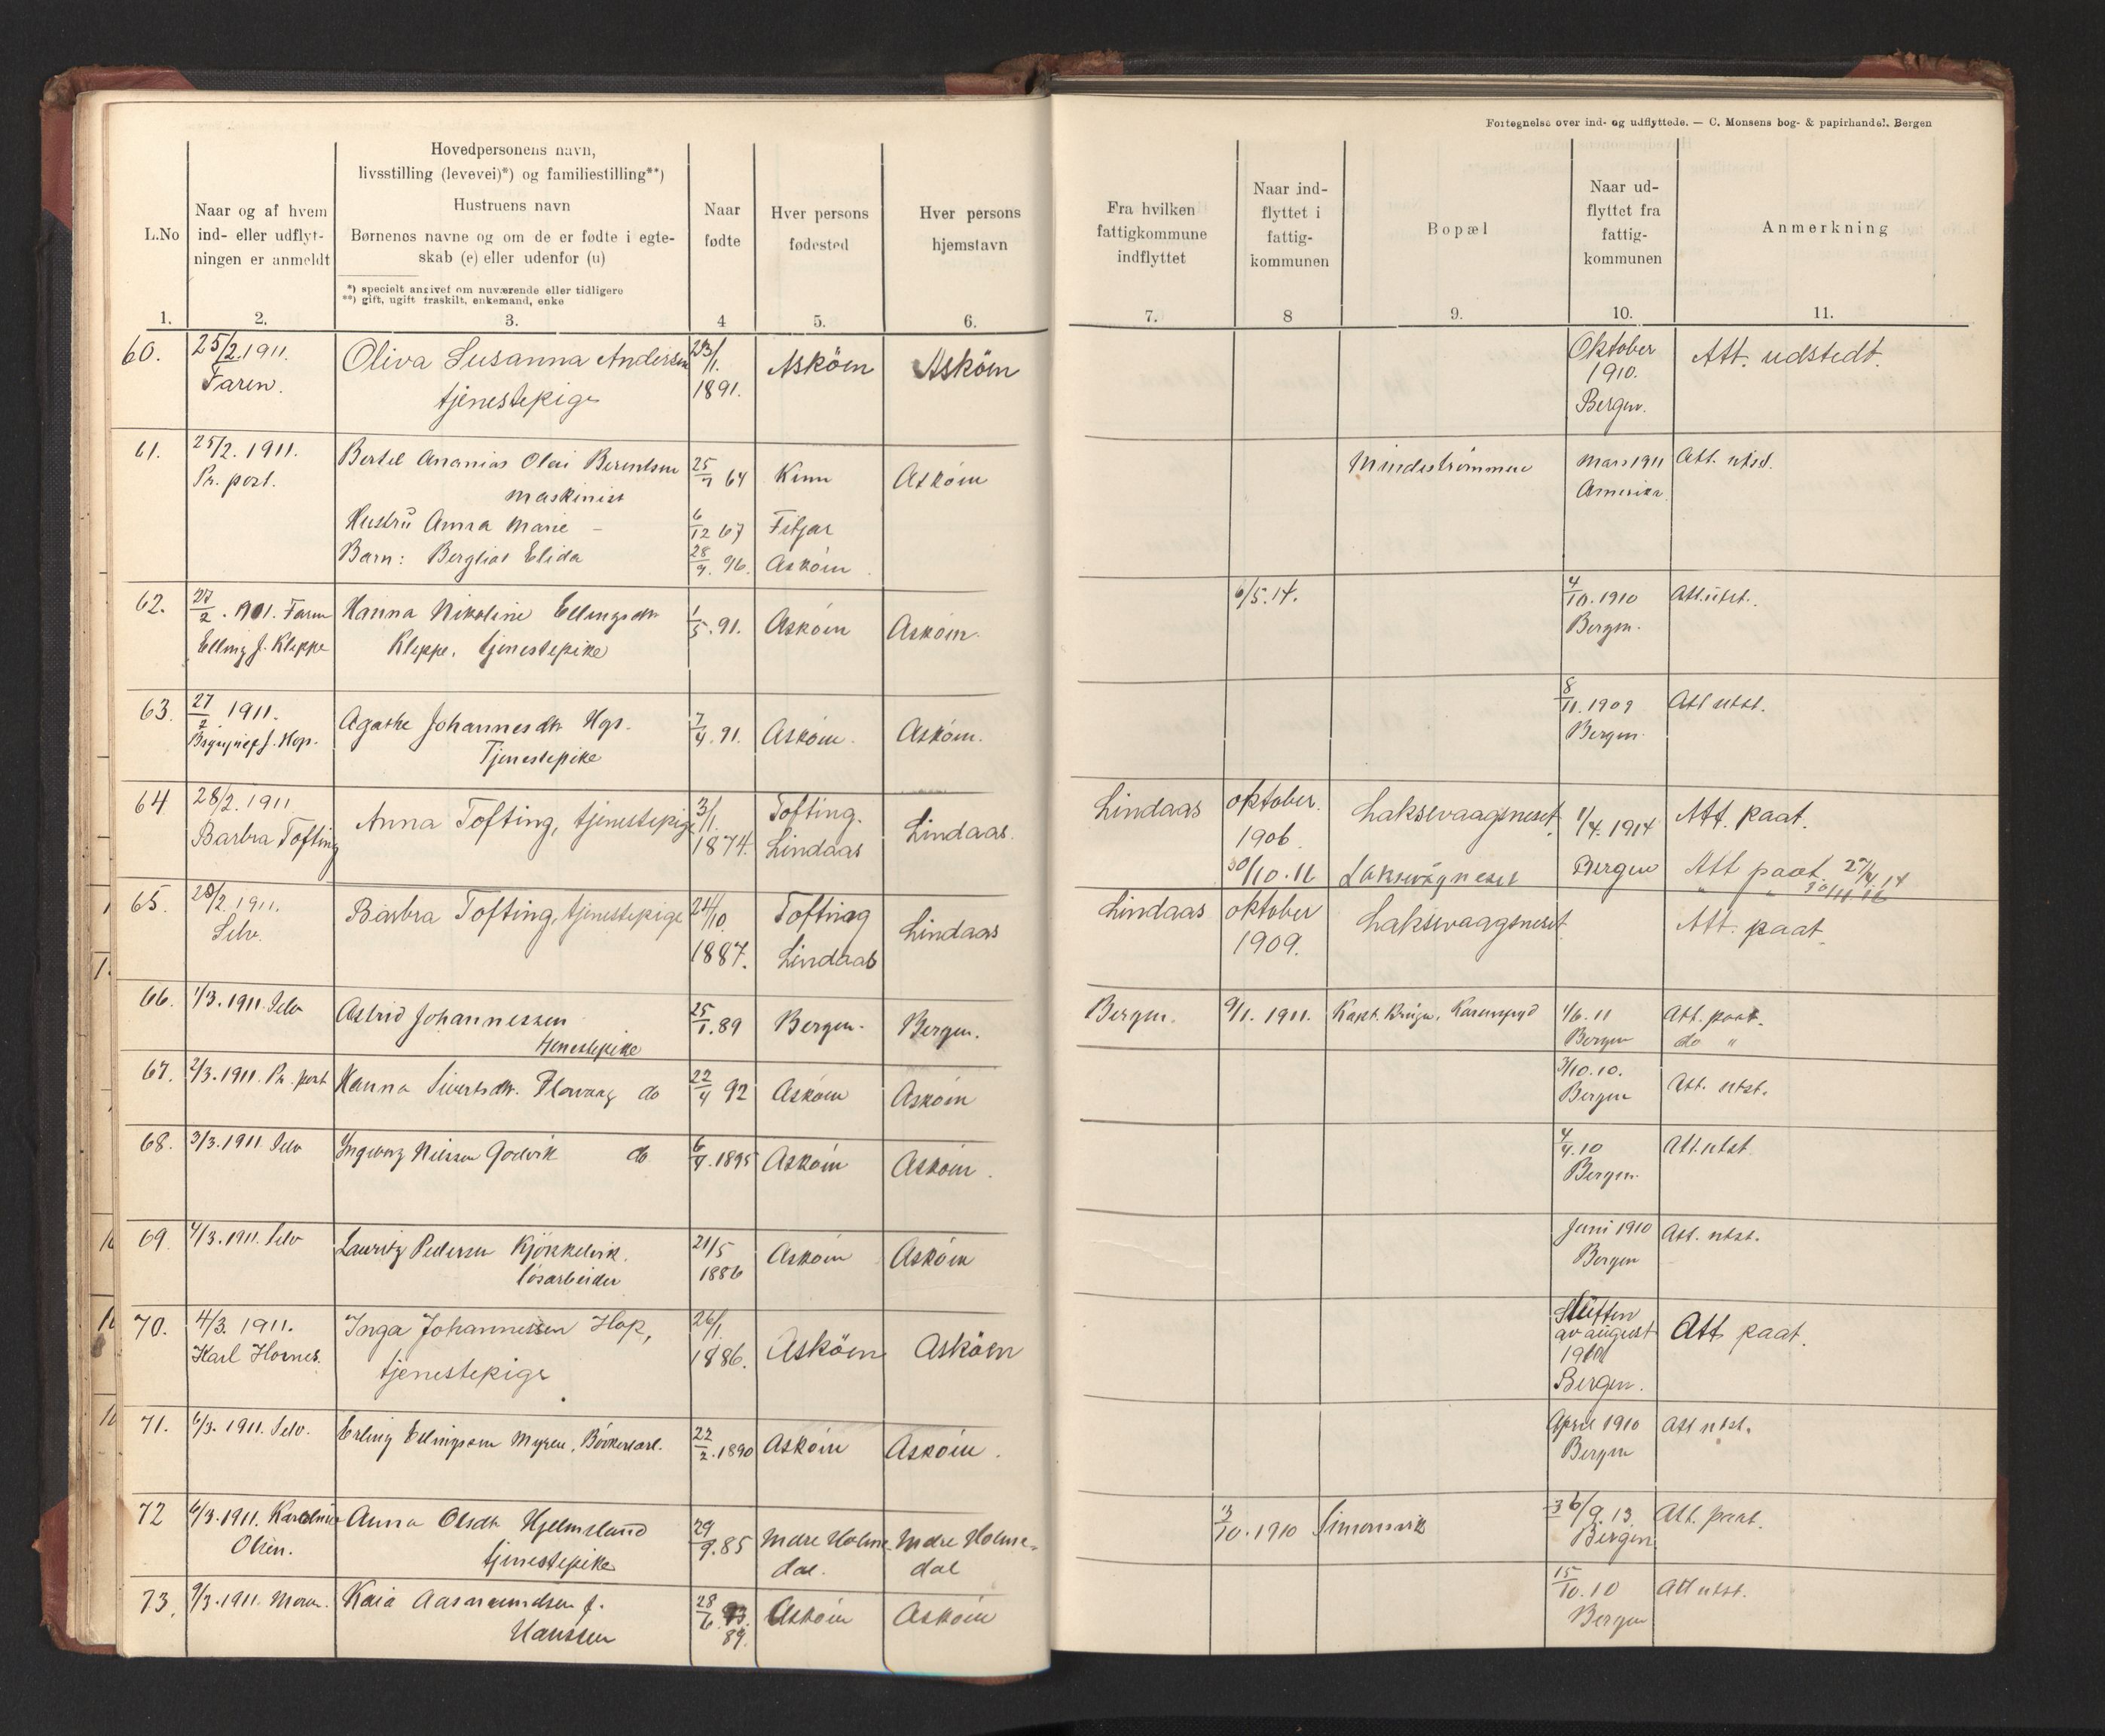 Fortegnelse over ind- og udflyttede. — C. Monsens bog- & papirhandel, Bergen
L.No
Naar og af hvem
ind- eller udflyt-
ningen er anmeldt
Hovedpersonens navn,
livsstilling (levevei)*) og familiestilling**)
Hustruens navn
Børnenes navne og om de er fødte i egte-
skab (e) eller udenfor (u)
*) specielt angivet om nuværende eller tidligere
**) gift, ugift fraskilt, enkemand, enke
Naar
fødte
Hver persons
fødested
Hver persons
hjemstavn
Fra hvilken
fattigkommune
indflyttet
Naar ind-
flyttet i
fattig-
kommunen
Bopæl
Naar ud-
flyttet fra
fattig-
kommunen
Anmerkning
1. 2. 3. 4 5. 6. 7. 8 9. 10. 11.
60. 25/2.1911. Oliva Susanna Andersen 23/1. Asköen Asköen Oktober Att. udstedt.
Faren. tjenestepige 1891. 1910.
Bergen.
61. 25/2.1911. Bertel Ananias Olai Berentsen 25/7 64 Kinn Asköen Mindeströmmen Mars 1911 Att. utst.
Pr. post. maskinist Amerika
Hustrü Anna Marie – 6/12 67 Fitjar
Barn: Bergliot Elida 28/9. 96. Asköen
62. 27/2. 1911. Faren Hanna Nikoline Ellingsdtr 1/5. 91. Asköen Asköen. 6/5.14. 4/10.1910 Att. utst.
Elling J. Kleppe Kleppe, tjenestepike Bergen.
63. 27/2 1911. Agathe Johannesdtr Hop. 7/4. 91. Asköen. Asköen. 8/11.1909 Att utst.
J. Hop. Tjenestepike Bergen.
64 28/2. 1911 Anna Tofting, tjenestepige 3/1. Tofting. Lindaas. Lindaas oktober. Laksevaagsneset. 1/4. 1914 Att. paat.
Barbra Tofting 1874. Lindaas 1906.
30/10. 16 Laksevågneset Bergen Att paat. 27/4 14
" " 30/11 16
65. 28/2. 1911. Barbra Tofting, tjenestepige 24/10. Tofting Lindaas Lindaas oktober Laksevaagsneset Att. paat.
Selv. 1887. Lindaas 1909.
66. 1/3. 1911. Selv Astrid Johannessen 25/1. 89 Bergen. Bergen. Bergen. 9/1. 1911. Kapt. 1/6. 11 Att. paat.
tjenestepike Bergen do "
67. 2/3. 1911. Pr. post Hanna Sivertsdtr. Florvaag do 22/4 92 Asköen Asköen 3/10.10. Att. utst.
Bergen
68. 3/3. 1911. Selv Ingeborg Nilssen Godvik do 6/4. 1895 Asköen Asköen. 4/4.10 Att. utst
Bergen.
69. 4/3. 1911. Selv Lauritz Pedersen Kjökkelvik. 21/5 Asköen Asköen Juni 1910 Att. utst.
lösarbeider 1886 Bergen
70. 4/3. 1911. Inga Johannessen Hop, 26/1. Asköen Asköen Slütten Att paat.
Karl Hornes. tjenestepige 1886. av august
1910
Bergen.
71. 6/3. 1911. Selv. Erling Ellingsen Myren, 22/2. 1890 Asköen Asköen. April 1910 Att utst.
Bergen
72 6/3. 1911. Karoline Anna Olsdtr Hjelmeland 29/9. 85 Indre Holme- Indre Holme- 3/10. 1910 Simonsvik 6/9. 13. Att. paat.
Olsen. tjenestepike dal. dal Bergen
73. 9/3. 1911. Moren. Kaia Aasmundsen f. 28/6 Asköen Asköen 15/10.10 Att utst.
Hanssen 89. Bergen